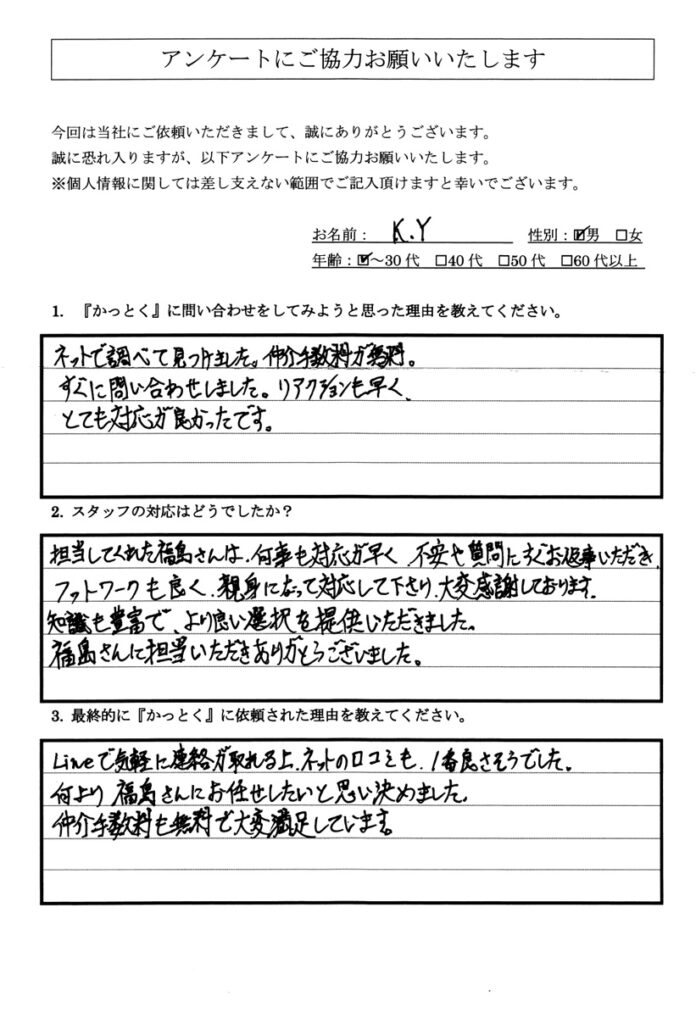 アンケートにご協力お願いいたします
今回は当社にご依頼いただきまして、誠にありがとうございます。
誠に恐れ入りますが、以下アンケートにご協力お願いいたします。
※個人情報に関しては差し支えない範囲でご記入頂けますと幸いでございます。
お名前: K.Y 性別:☑男 □女
年齢:☑~30代 □40代 □50代 □60代以上
1. 『かっとく』に問い合わせをしてみようと思った理由を教えてください。
ネットで調べて見つけました。仲介手数料が無料。
すぐに問い合わせしました。リアクションも早く、
とても対応が良かったです。
2. スタッフの対応はどうでしたか?
担当してくれた福島さんは、何事も対応が早く 不安や質問にすぐお返事いただき、
フットワークも良く、親身になって対応して下さり、大変感謝しております。
知識も豊富で、より良い選択を提供いただきました。
福島さんに担当いただきありがとうございました。
3. 最終的に『かっとく』に依頼された理由を教えてください。
Lineで気軽に連絡が取れる上、ネットの口コミも、1番良さそうでした。
何より福島さんにお任せしたいと思い決めました。
仲介手数料も無料で大変満足しています。